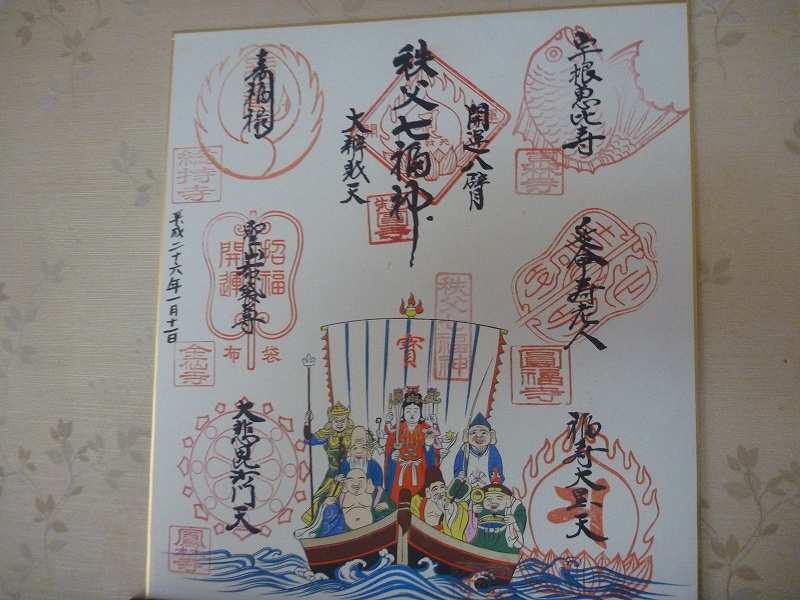 宇根恵比寿
東林寺
延命寿老人
圓福寺
福寿大黒天
開運八臂
秩父七福神
大辨財天
秩父七福神
寶
總持寺
招福
開運
布袋
金仙寺
大悲毘沙門天
鳳林寺
平成二十六年一月十一日